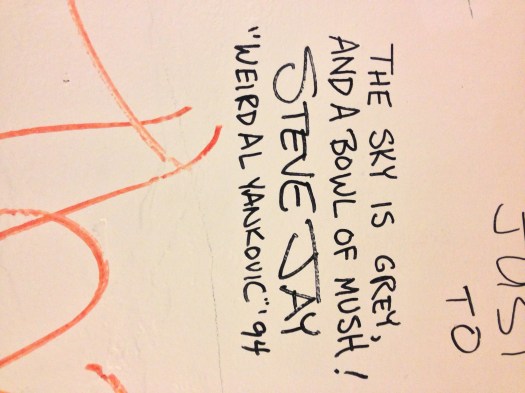 THE SKY IS GREY,
AND A BOWL OF MUSH!
STEVE JAY
"WEIRD AL YANKOVIC" '94
JUST
TO